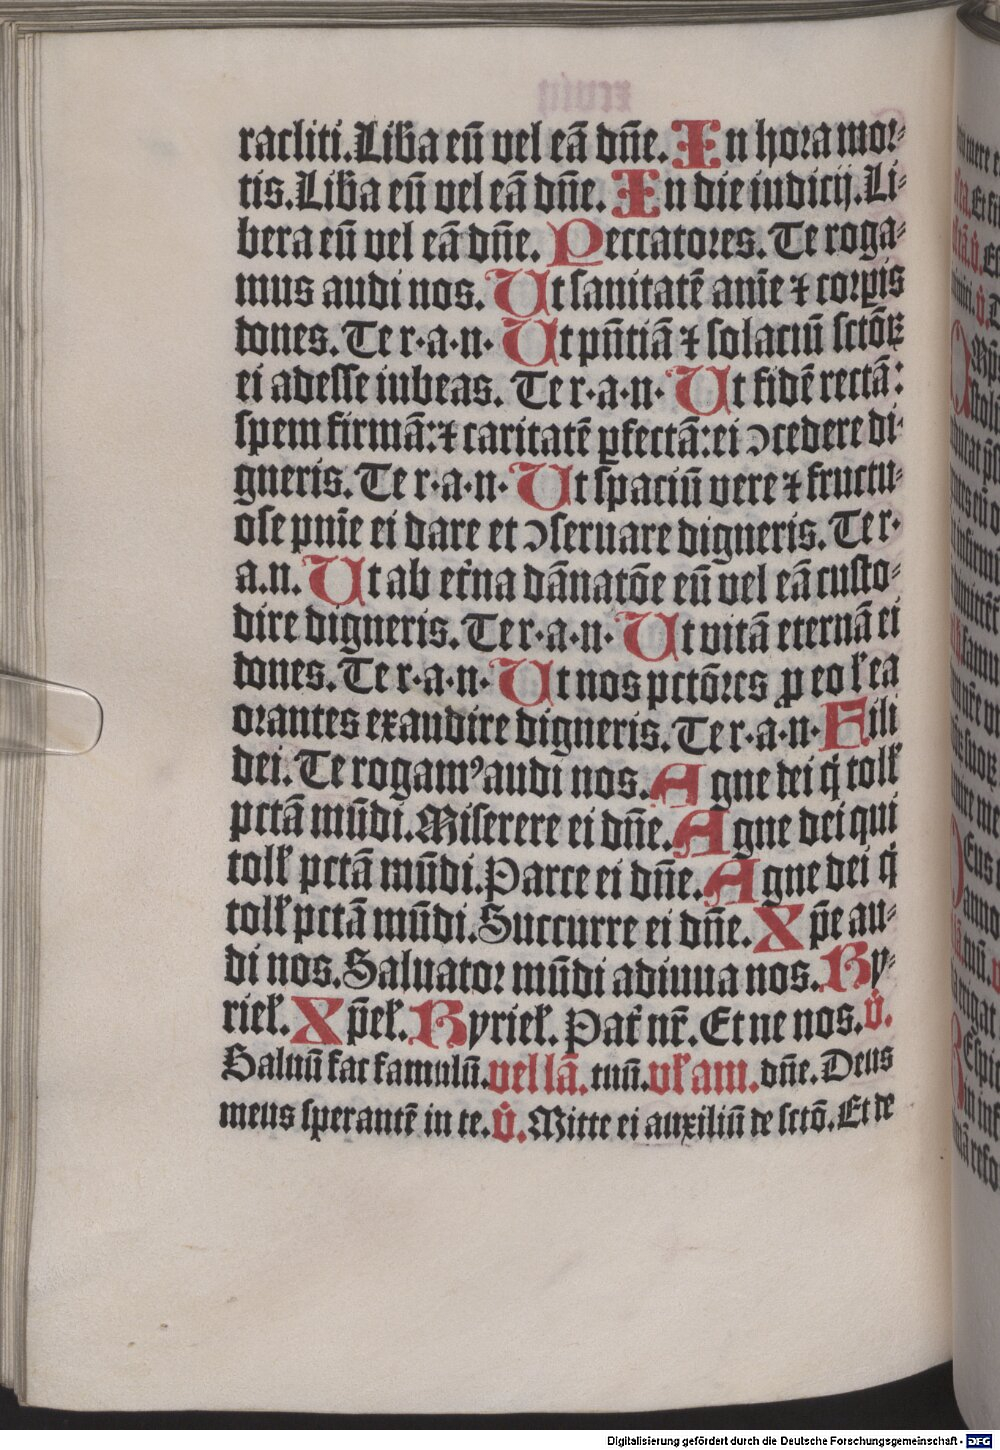 racliti. Lib̄a eū vel eā dn̄e. In hora mor⸗
tis. Lib̄a eū vel eā dn̄e. In die iudicij. Li⸗
bera eū vel eā dn̄e. Peccatores. Te roga⸗
mus audi nos. Ut sanitatē anīe ⁊ corpis
dones. Te r·a·n· Ut pn̄tiā ⁊ solaciū sctōꝝ
ei adesse iubeas. Te r·a·n· Ut fidē rectā:
spem firmā: ⁊ caritatē ꝑfectā: ei ↄcedere di⸗
gneris. Te r·a·n· Ut spaciū vere ⁊ fructu⸗
ose pnīe ei dare et ↄseruare digneris. Te r·
a.n. Ut ab etr̄na dānatōe eū vel eā custo⸗
dire digneris. Te r·a·n· Ut vitā eternā ei
dones. Te r·a·n· Ut nos pctōres ꝓ eo ł ea
orantes exaudire digneris. Te r·a·n· Fili
dei. Te rogamꝰ audi nos. Agne dei q̄ toll̄
pctā mūdi. Miserere ei dn̄e. Agne dei qui
toll̄ pctā mūdi. Parce ei dn̄e. Agne dei q̄
toll̄ pctā mūdi. Succurre ei dn̄e. Xp̄e au⸗
di nos. Saluator mūdi adiuua nos. Ky⸗
riel̄. Xp̄el̄. Kyriel̄. Pat̄ nr̄. Et ne nos. v̇.
Saluū fac famulū. vel lā. tuū. vł am. dn̄e. Deus
meus sperantē in te. v̇. Mitte ei auxiliū de sctō. Et de
Digitalisierung gefördert durch die Deutsche Forschungsgemeinschaft - DFG